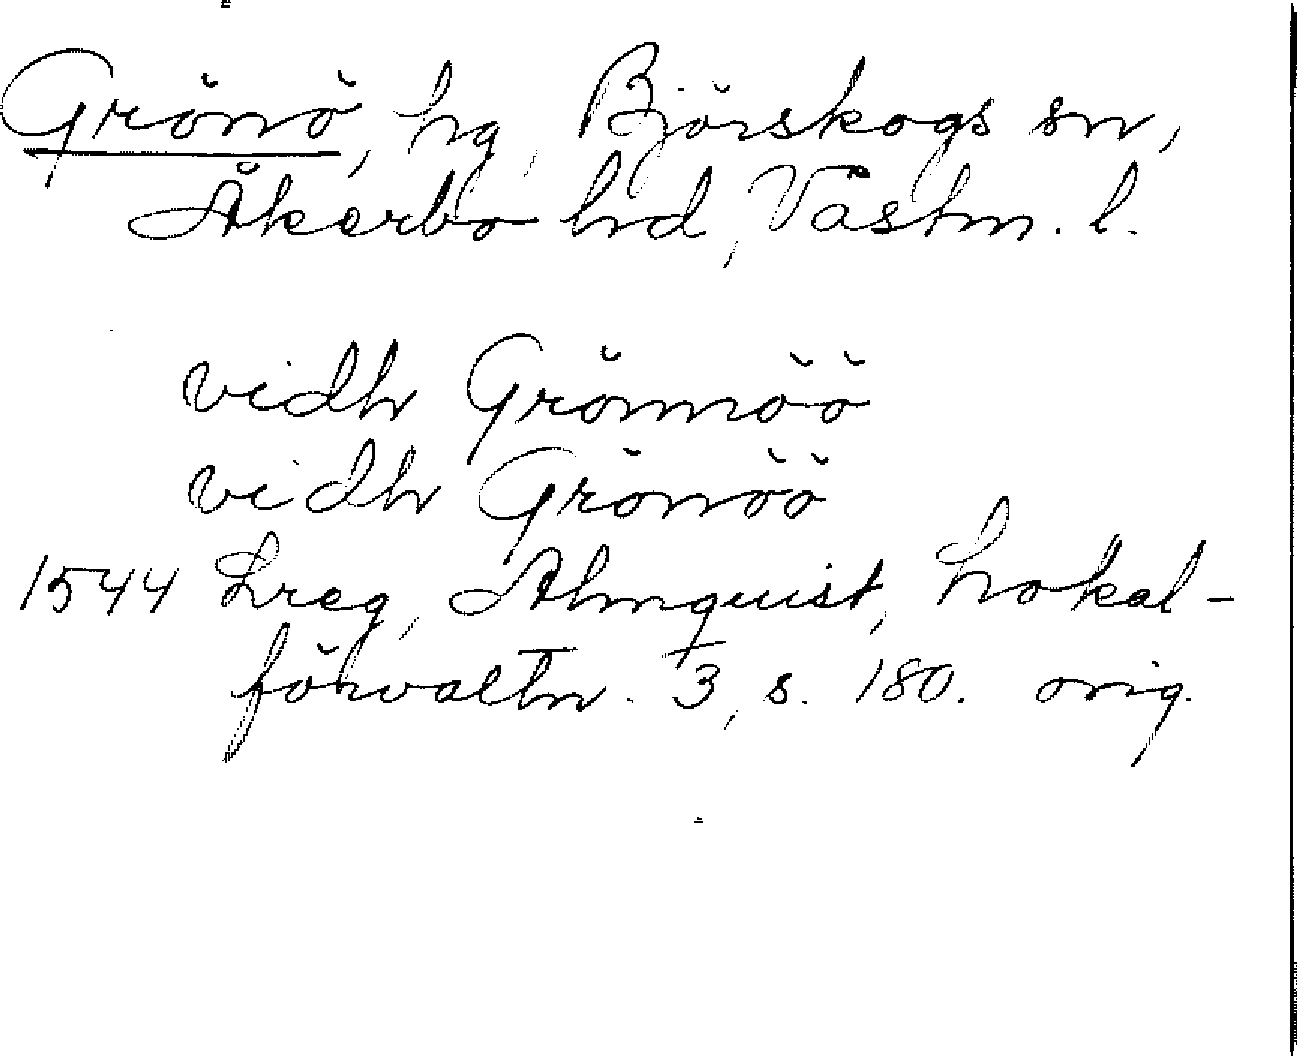 Grönö, hg, Björskogs sn,
Åkerbo hd, Västm. l.
vidh Grönnöö
vidh Grönöö
1544 Lreg, Almquist, Lokal-
förvaltn. 3, s. 180. orig.